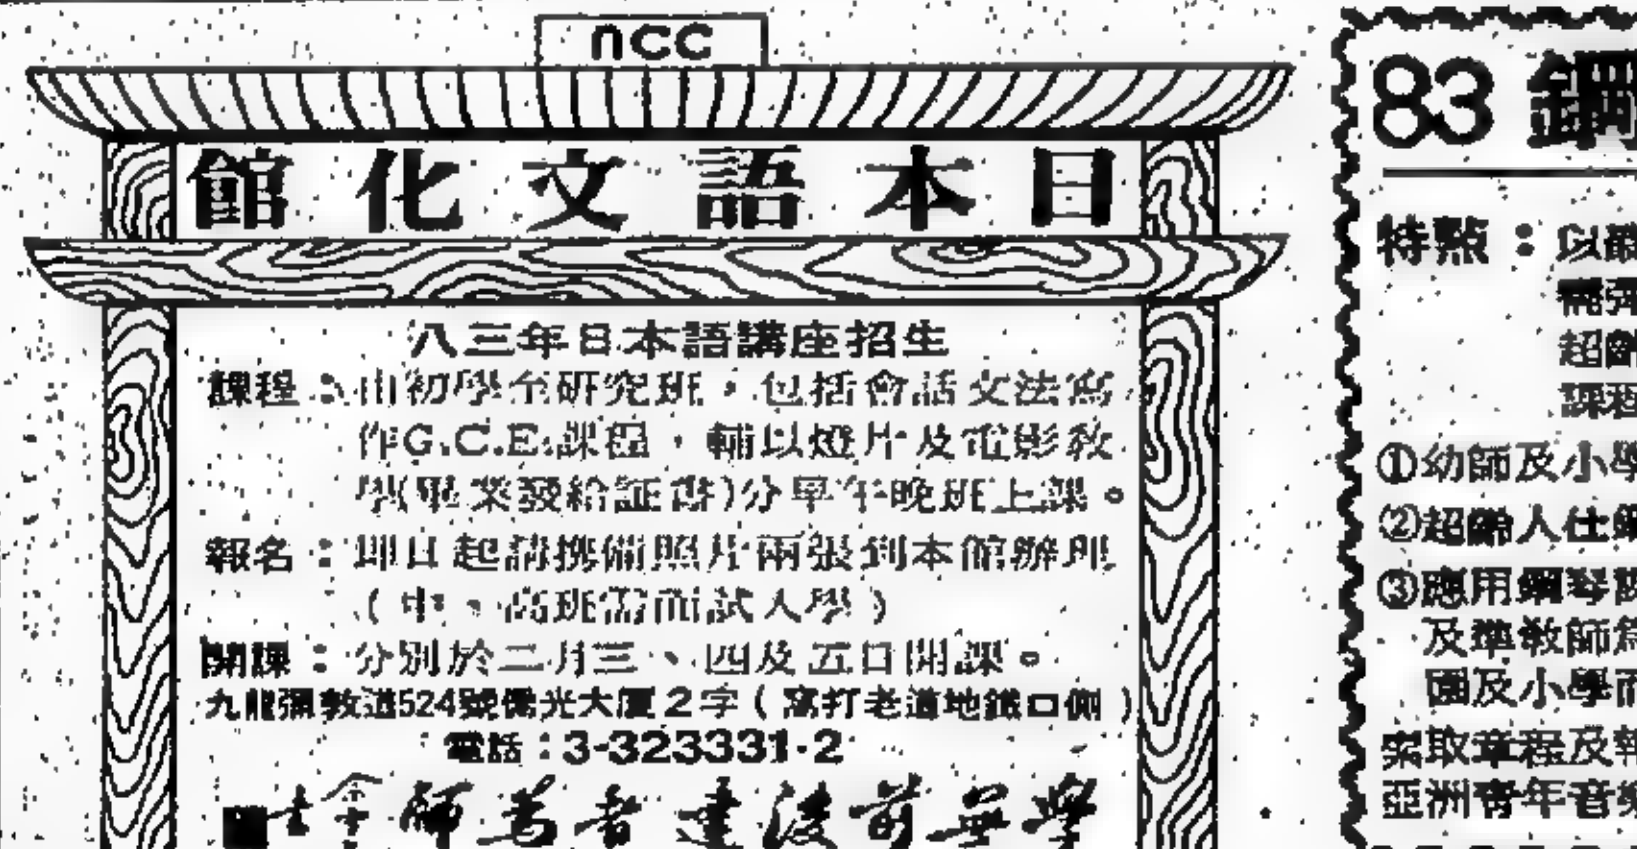 ncc
日本語文化館
八三年日本語講座招生
課程：由初學至研究班，包括會話文法寫
作G.C.E.課程，輔以燈片及電影教
學(畢業發給証書)分早午晚班上課。
報名：即日起請携備照片兩張到本館辦理
(中、高班需面試入學)
開課：分別於二月三、四及五日開課。
九龍彌敦道524號僑光大厦2字(窩打老道地鐵口側)
電話：3-323331-2
學無前後達者為師
83 鋼
特點：以
超齡
課程
①幼師及小學
②超齡人仕鋼
③應用鋼琴課
及準教師為
園及小學而
索取章程及報
亞洲青年音樂